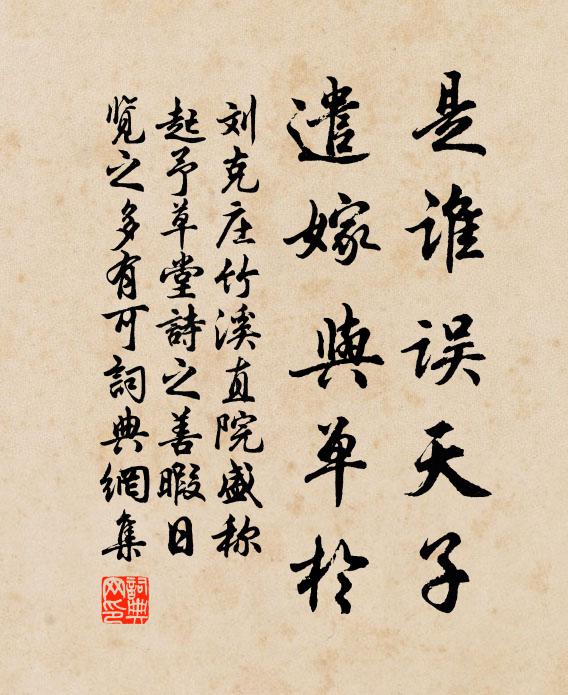 是谁误天子
遣嫁與单於
刘克庄竹溪直院盛称
起予草堂詩之善暇日
览之多有可詞典網集
詞典網印